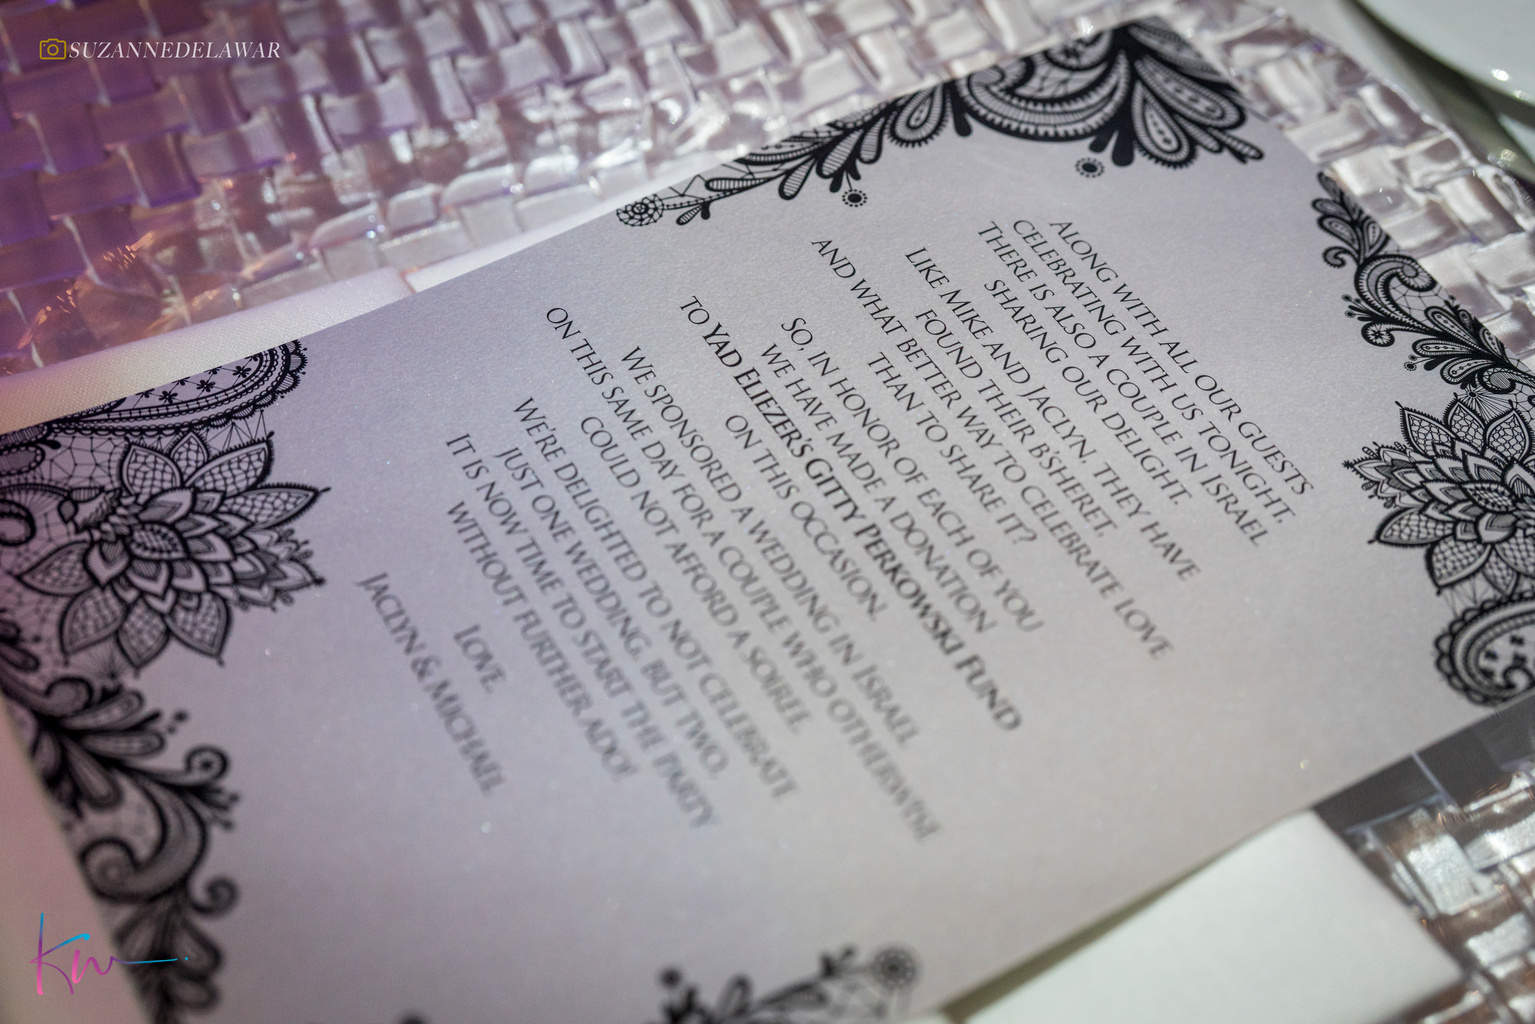 SUZANNEDELAWAR
ALONG WITH ALL OUR GUESTS
CELEBRATING WITH US TONIGHT,
THERE IS ALSO A COUPLE IN ISRAEL
SHARING OUR DELIGHT.
LIKE MIKE AND JACLYN, THEY HAVE
FOUND THEIR B'SHERET,
AND WHAT BETTER WAY TO CELEBRATE LOVE
THAN TO SHARE IT?
SO, IN HONOR OF EACH OF YOU
WE HAVE MADE A DONATION
TO YAD ELIEZER'S GITTY PERKOWSKI FUND
ON THIS OCCASION.
WE SPONSORED A WEDDING IN ISRAEL
ON THIS SAME DAY FOR A COUPLE WHO OTHERWISE
COULD NOT AFFORD A SOIREE.
WE'RE DELIGHTED TO NOT CELEBRATE
JUST ONE WEDDING, BUT TWO.
IT IS NOW TIME TO START THE PARTY
WITHOUT FURTHER ADO!
LOVE,
JACLYN & MICHAEL
Kw